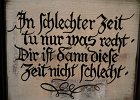 „In schlechter Zeit
tu nur was recht·
Dir ist dann diese
Zeit nicht schlecht·